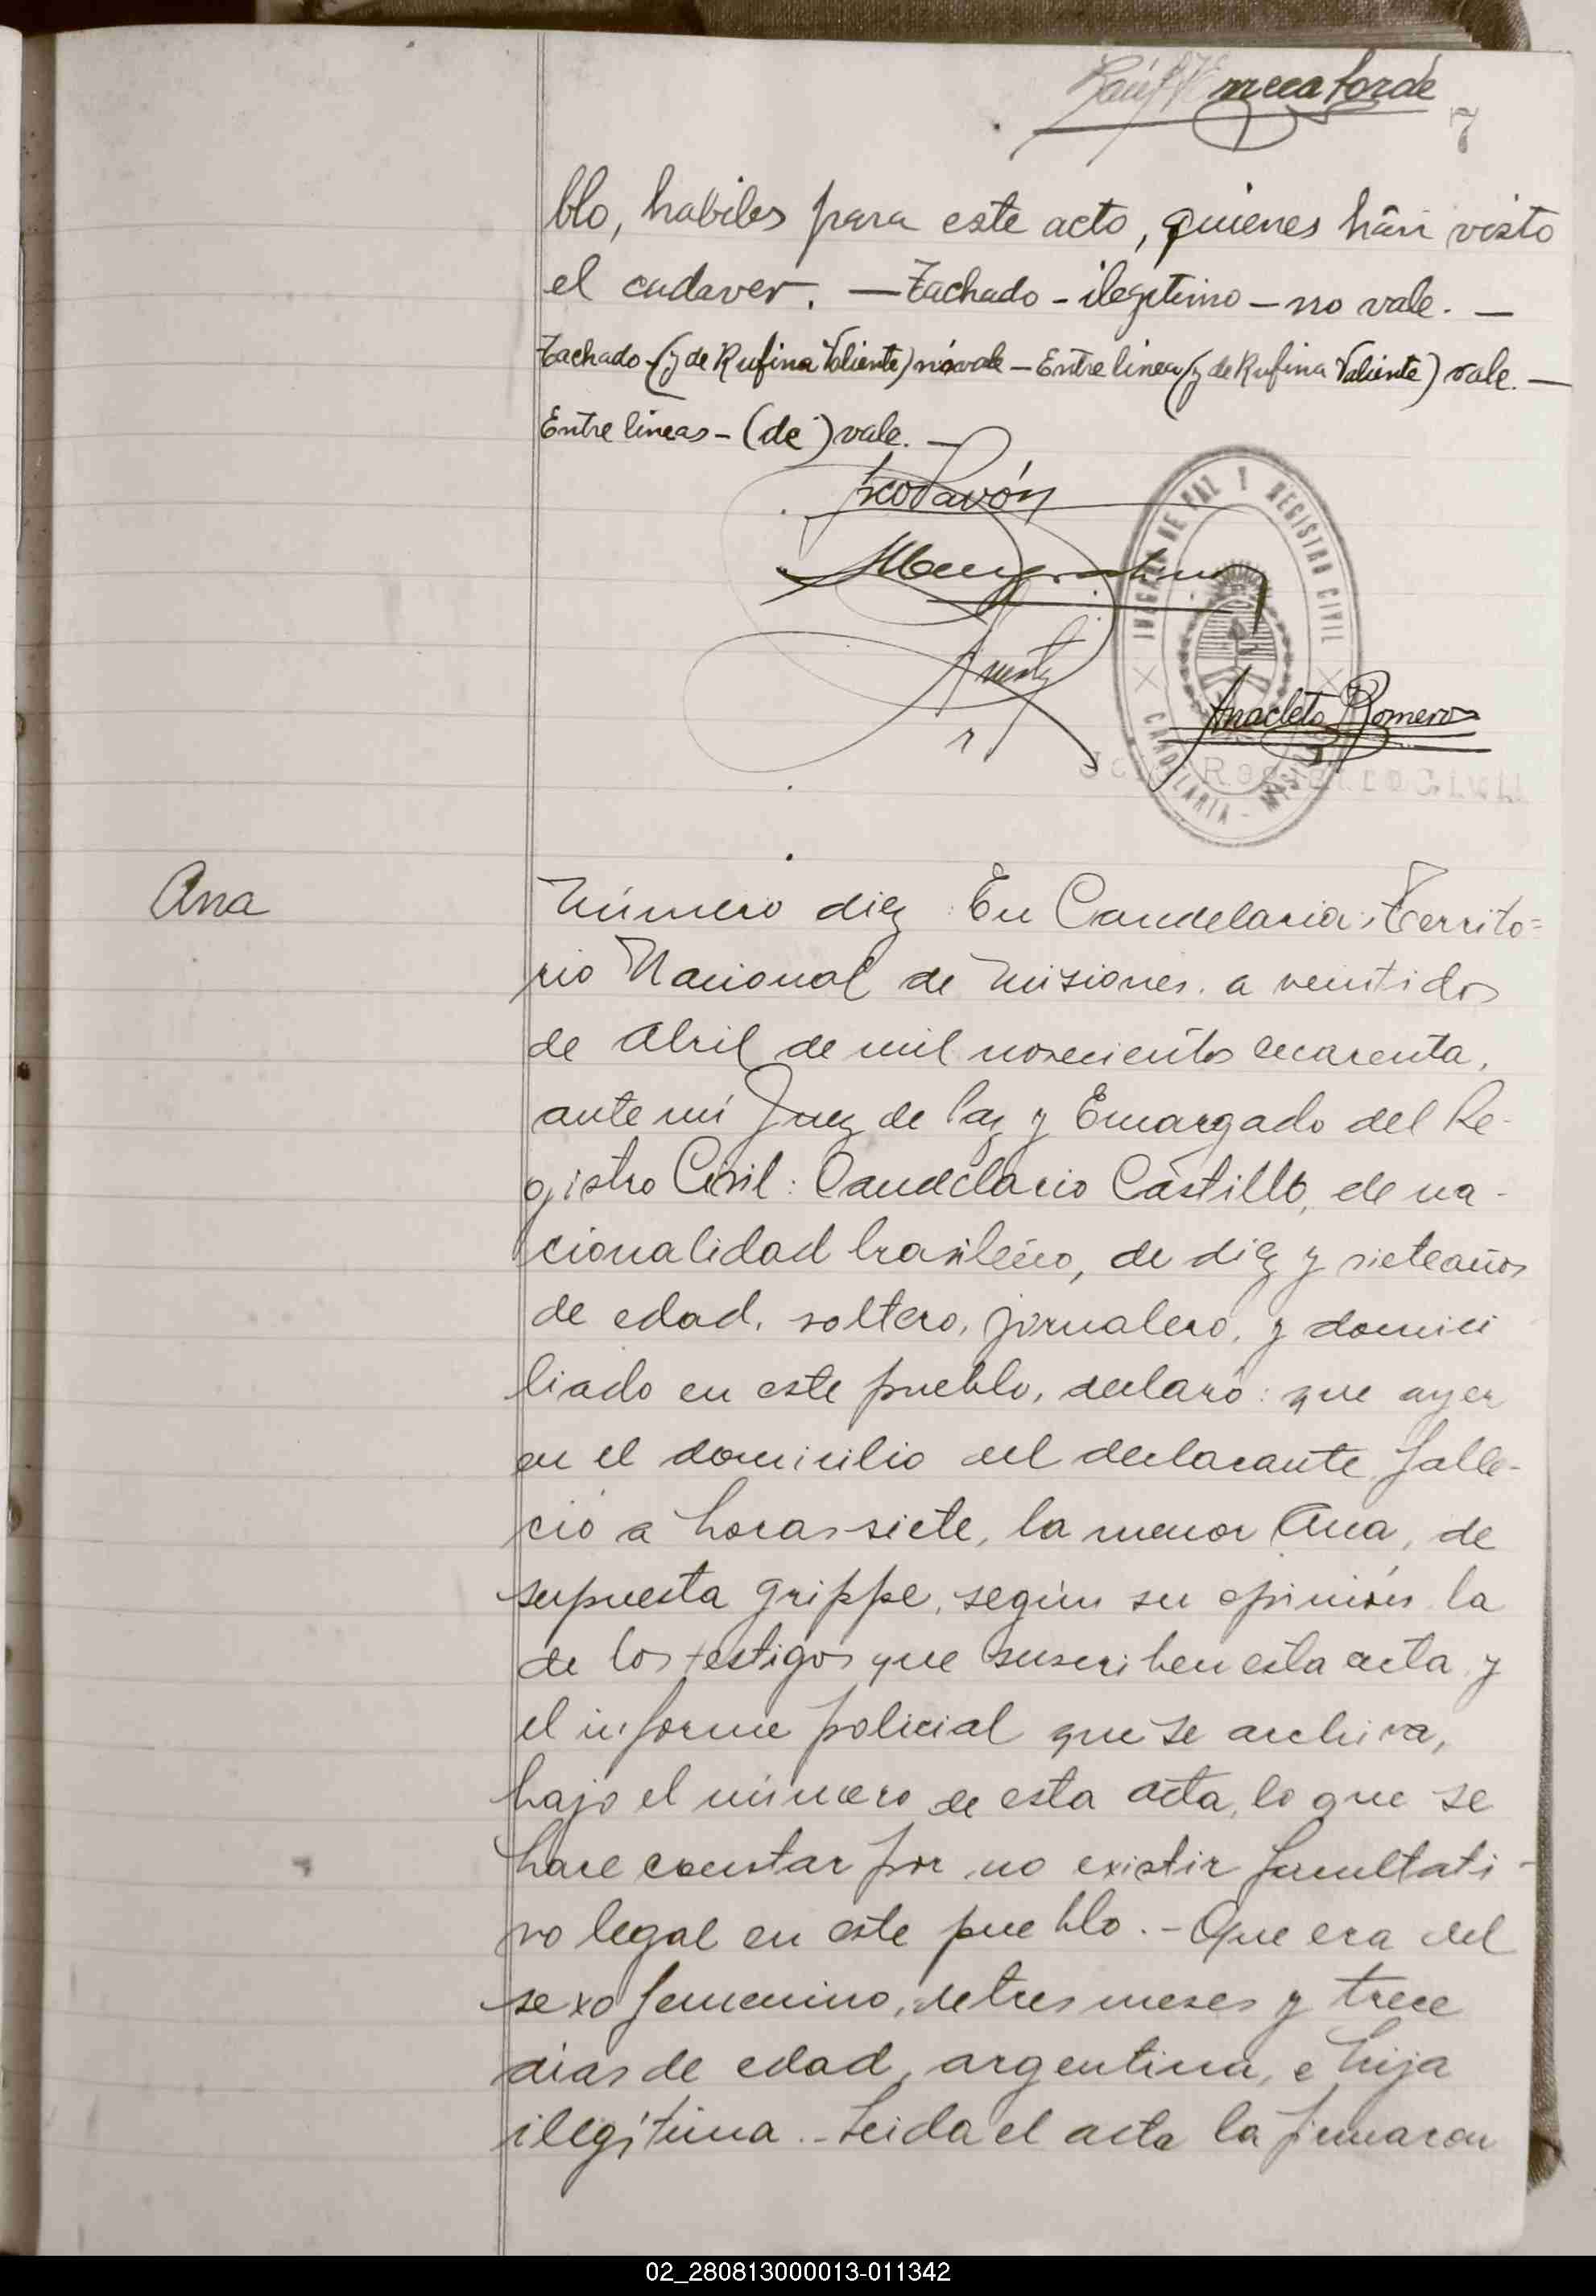 7
blo, habiles para este acto, quienes hán visto
el cadaver. — Tachado - ilegitimo - no vale. —
Tachado - (y de Rufina Valiente) no vale - Entre linea (y de Rufina Valiente) vale. —
Entre lineas - (de) vale. —
Fco Pavón
JUZGADO DE PAZ Y REGISTRO CIVIL
CANDELARIA - MISIONES
Anacleto Romero
Registro Civil
Ana
Número diez: En Candelaria, Territo=
rio Nacional de Misiones, a veintidos
de Abril de mil novecientos cuarenta,
ante mí Juez de Paz y Encargado del Re-
gistro Civil: Candelario Castillo, de na-
cionalidad brasileño, de diez y siete años
de edad, soltero, jornalero, y domici
liado en este pueblo, declaró: que ayer
en el domicilio del declarante falle-
ció a horas siete, la menor Ana, de
supuesta grippe, según su opinión la
de los testigos que suscriben esta acta y
el informe policial que se archiva,
bajo el número de esta acta, lo que se
hace constar por no existir facultati-
vo legal en este pueblo. - Que era del
sexo femenino, de tres meses y trece
días de edad, argentina, e hija
ilegítima. - Leida el acta la firmaron
02_280813000013-011342